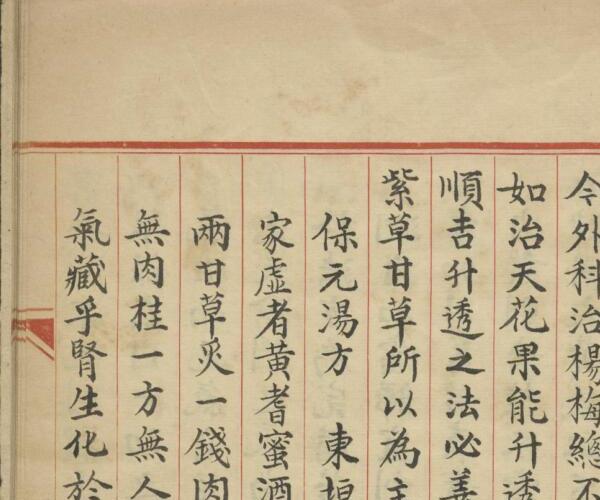 今外科治楊梅總不
如治天花果能升透
順吉升透之法必善
紫草甘草所以為主
保元湯方　東垣
家虛者黃耆蜜酒
兩甘草炙一錢肉
無肉桂一方無人
氣藏乎腎生化於